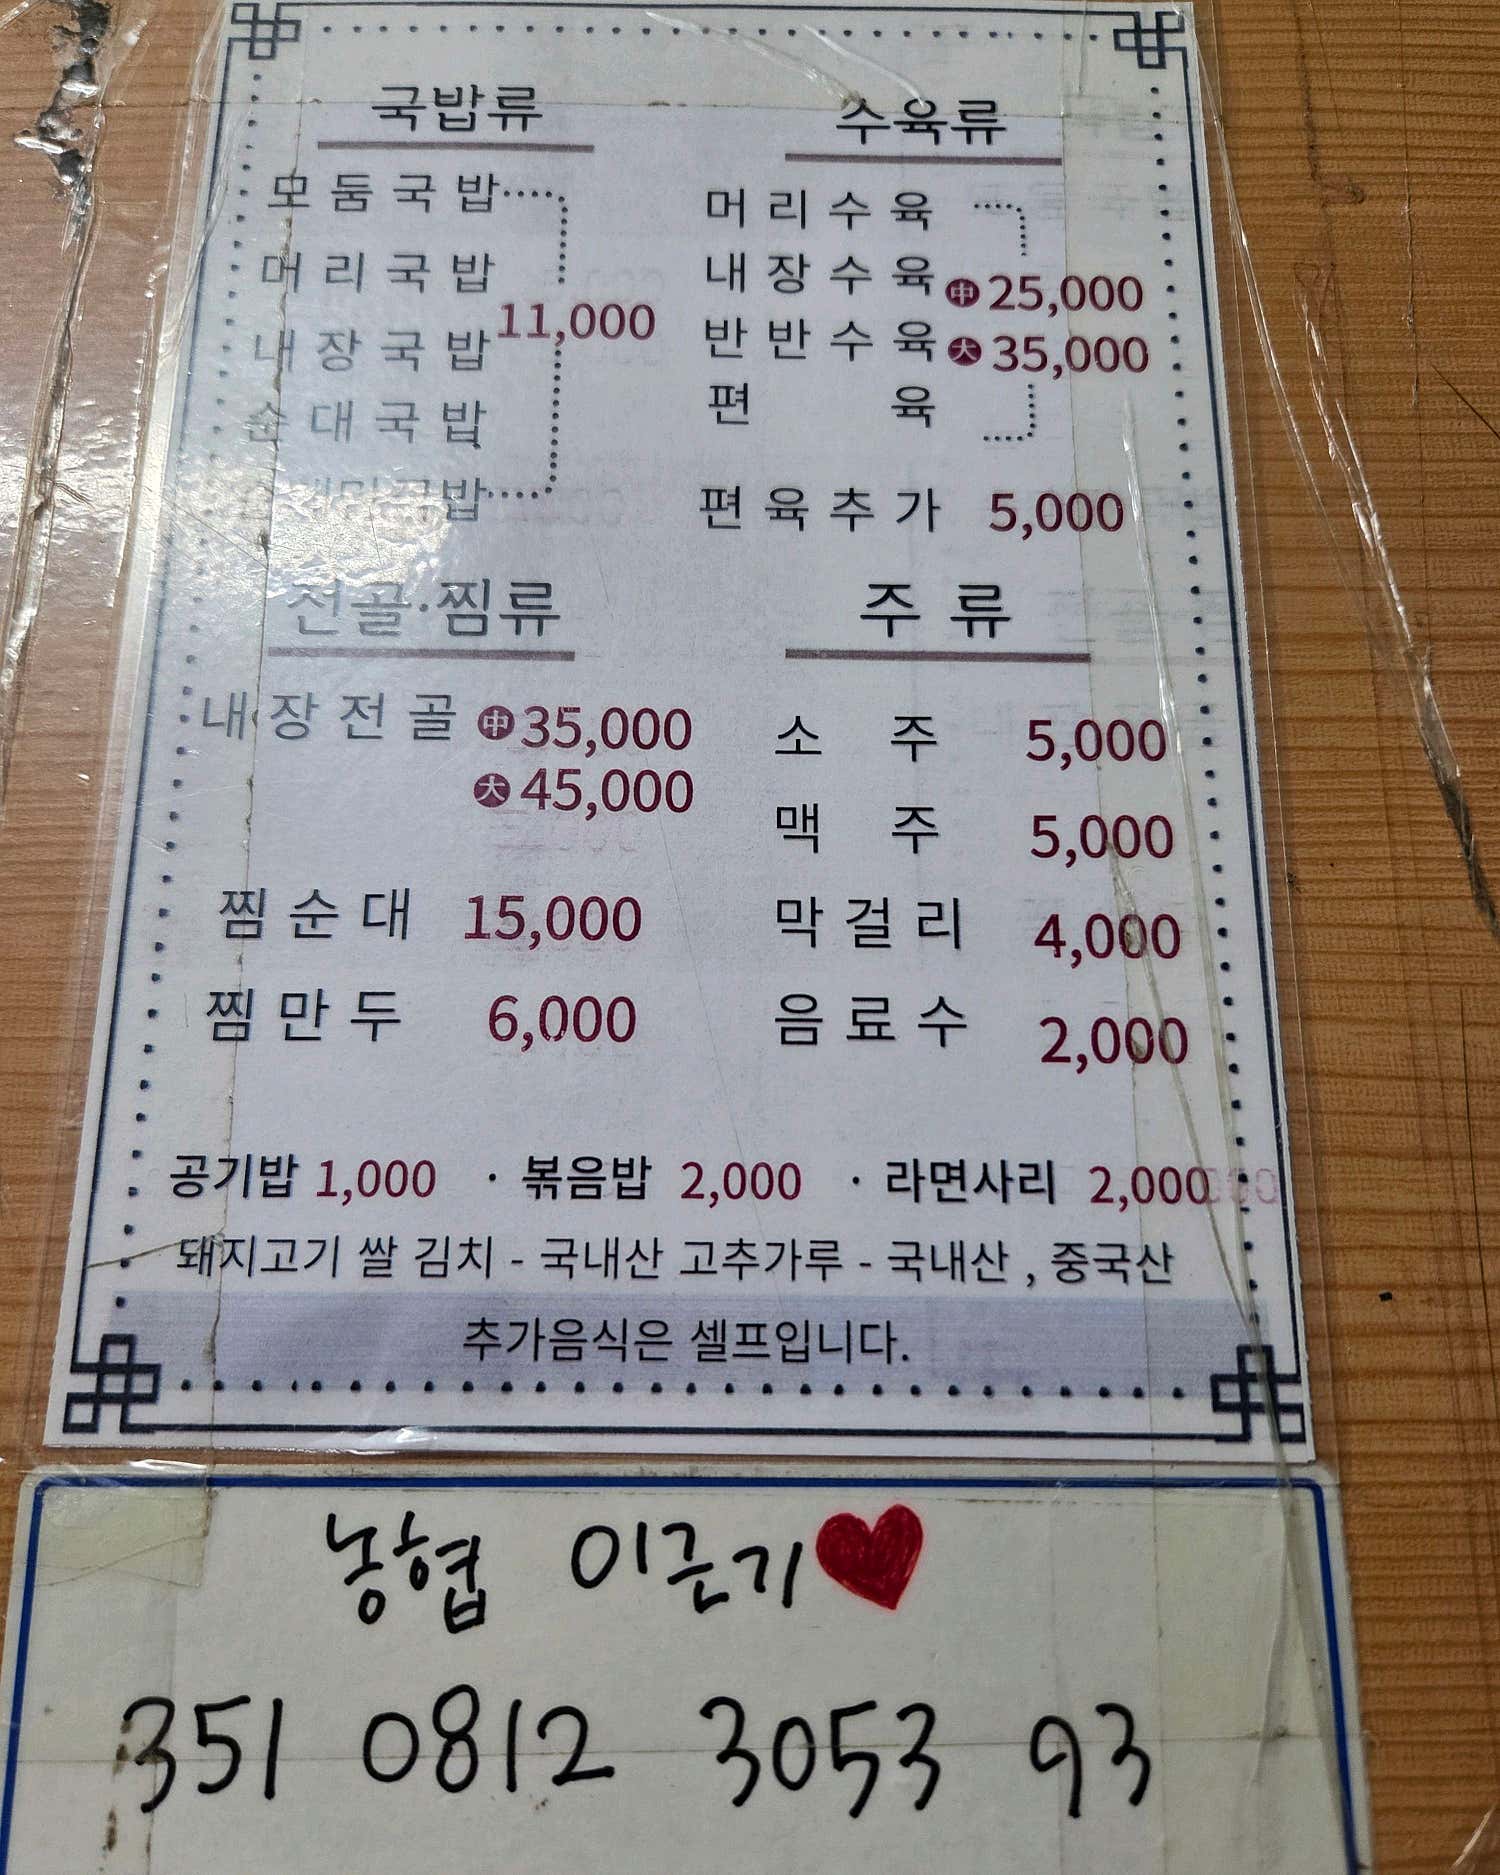 국밥류
모둠국밥
머리국밥
내장국밥
순대국밥
국밥
11,000
수육류
머리수육
내장수육
반반수육
편육
中 25,000
大 35,000
편육추가 5,000
전골·찜류
내장전골 中 35,000
大 45,000
찜순대 15,000
찜만두 6,000
주류
소주 5,000
맥주 5,000
막걸리 4,000
음료수 2,000
공기밥 1,000 · 볶음밥 2,000 · 라면사리 2,000
돼지고기 쌀 김치 - 국내산 고추가루 - 국내산 , 중국산
추가음식은 셀프입니다.
농협 이근기
351 0812 3053 93